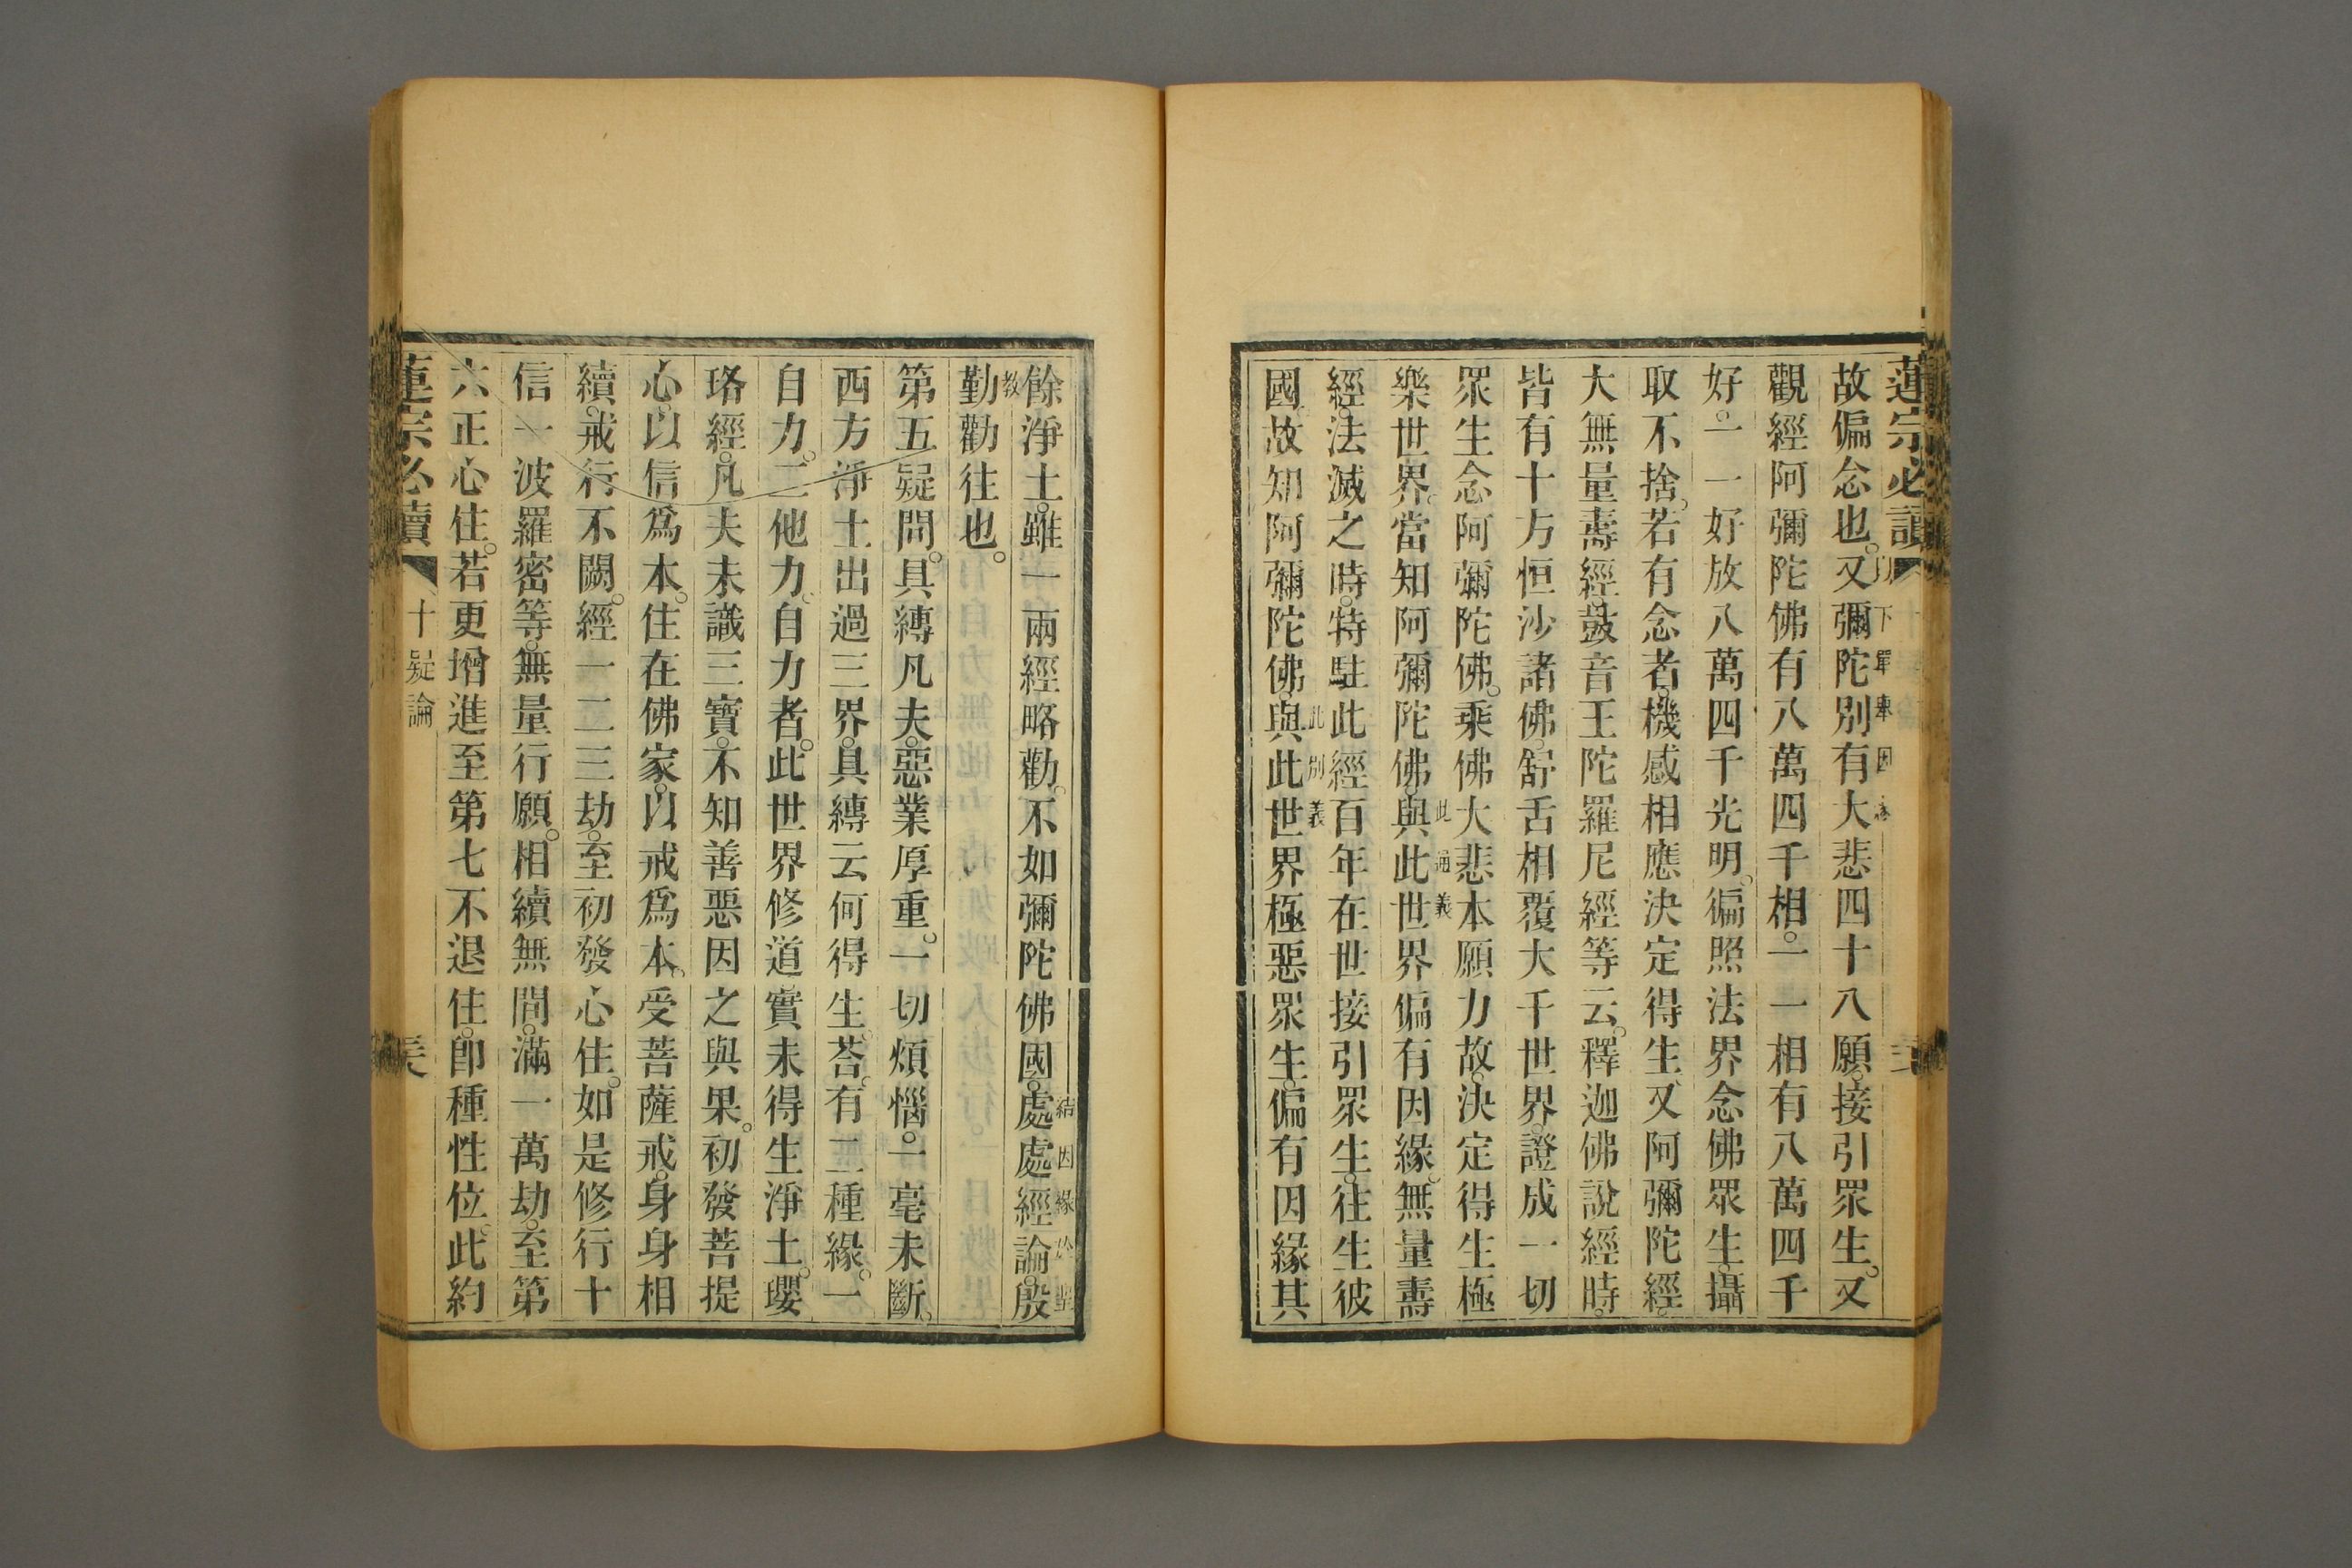 蓮宗必讀
故偏念也。又彌陀別有大悲四十八願。接引眾生。又
觀經阿彌陀佛有八萬四千相。一一相有八萬四千
好。一一好放八萬四千光明。徧照法界念佛眾生。攝
取不捨。若有念者。機感相應決定得生。又阿彌陀經。
大無量壽經。鼓音王陀羅尼經等云。釋迦佛說經時。
皆有十方恒沙諸佛。舒舌相覆大千世界。證成一切
眾生念阿彌陀佛。乘佛大悲本願力故。決定得生極
此通義
樂世界。當知阿彌陀佛。與此世界偏有因緣。無量壽
經。法滅之時。特駐此經百年在世接引眾生。往生彼
此別義
國。故知阿彌陀佛。與此世界極惡眾生。偏有因緣其
結因緣於聖
餘淨土。雖一兩經略勸。不如彌陀佛國。處處經論。殷
教
勤勸往也。
第五疑問。具縛凡夫。惡業厚重。一切煩惱。一毫未斷。
西方淨土出過三界。具縛云何得生。荅。有二種緣。一
自力。二他力。自力者。此世界修道實未得生淨土。瓔
珞經。凡夫未識三寶。不知善惡因之與果。初發菩提
心。以信爲本。住在佛家。以戒爲本。受菩薩戒。身身相
續。戒行不闕。經一二三劫。至初發心住。如是修行十
信一波羅密等。無量行願。相續無間。滿一萬劫。至第
六正心住。若更增進至第七不退住。卽種性位。此約
蓮宗必讀
十疑論